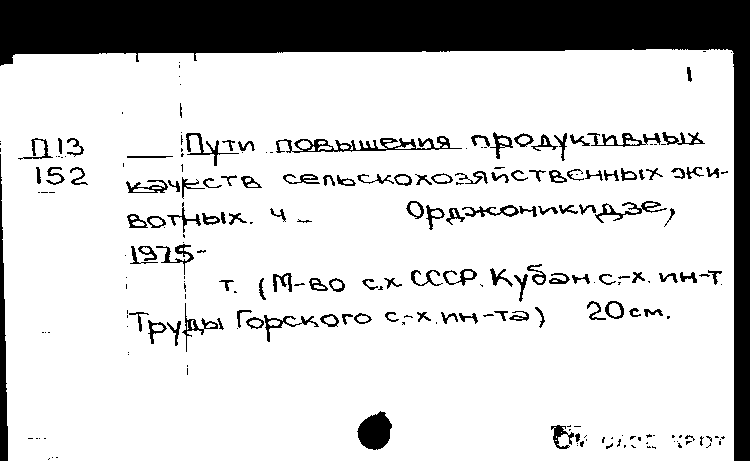 1
П13
152
Пути повышения продуктивных
качеств сельскохозяйственных жи-
вотных. Ч – Орджоникидзе,
1975-
т. (М-во с.х СССР. Кубан. с.-х. ин-т
Труды Горского с.-х. ин-та) 20 см.